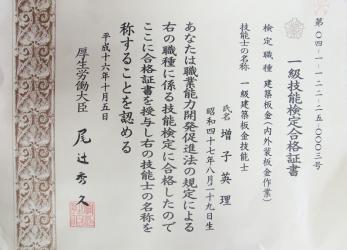 第〇四-一-一二二-二五-〇〇〇三号
一級技能検定合格証書
検定職種 建築板金(内外装板金作業)
技能士の名称 一級建築板金技能士
氏名 増子英理
昭和四十七年八月二十九日生
あなたは職業能力開発促進法の規定による
右の職種に係る技能検定に合格したので
ここに合格証書を授与し右の技能士の名称を
称することを認める
平成十六年十月五日
厚生労働大臣 尾辻秀久